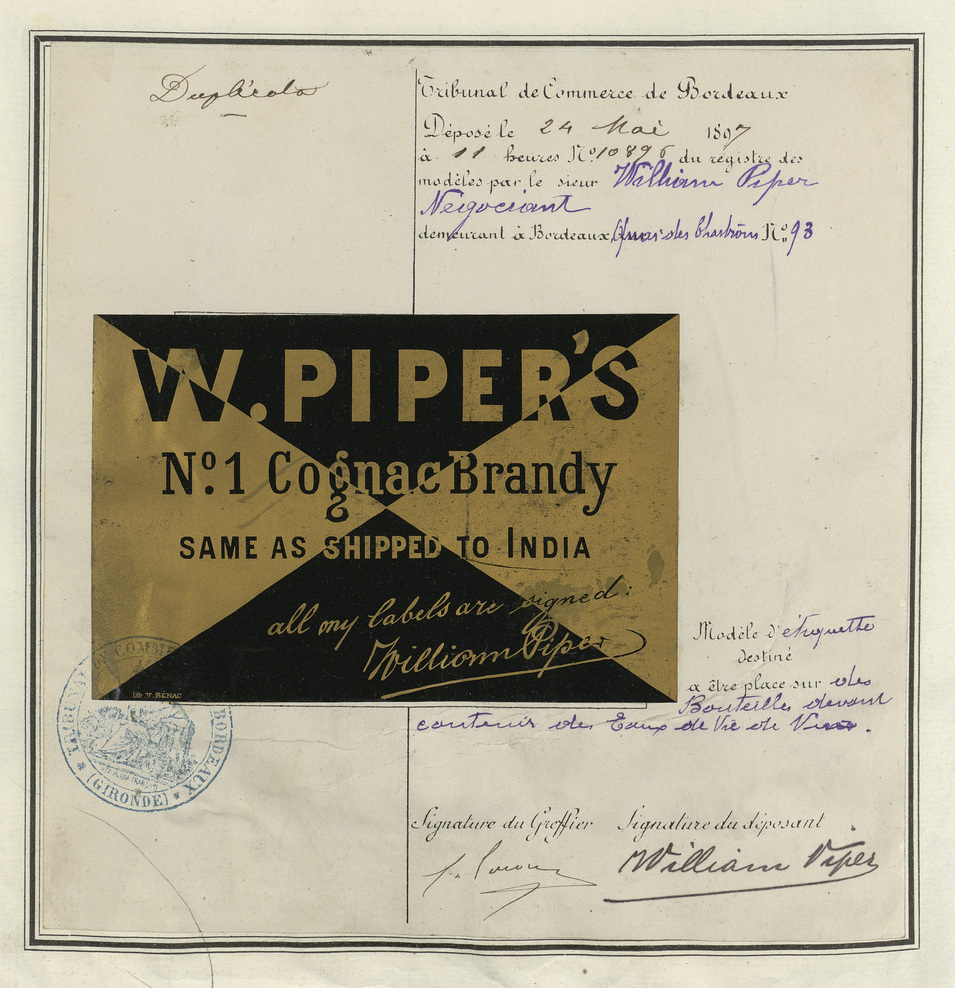 Duplicata
Tribunal de Commerce de Bordeaux
Déposé le 24 Mai 1897
à 11 heures Nº 10896 du registre des
modèles par le sieur William Piper
Négociant
demeurant à Bordeaux, Quai des Chartrons Nº 93
W. PIPER'S
Nº. 1 Cognac Brandy
SAME AS SHIPPED TO INDIA
all my labels are signed:
William Piper
lith. V. SENAC
Modèle d'étiquette
destiné
a être place sur des
Bouteilles devant
contenir des Eaux de Vie de Vin.
TRIBUNAL DE COMMERCE
BORDEAUX
* (GIRONDE) *
Signature du Greffier Signature du déposant
William Piper